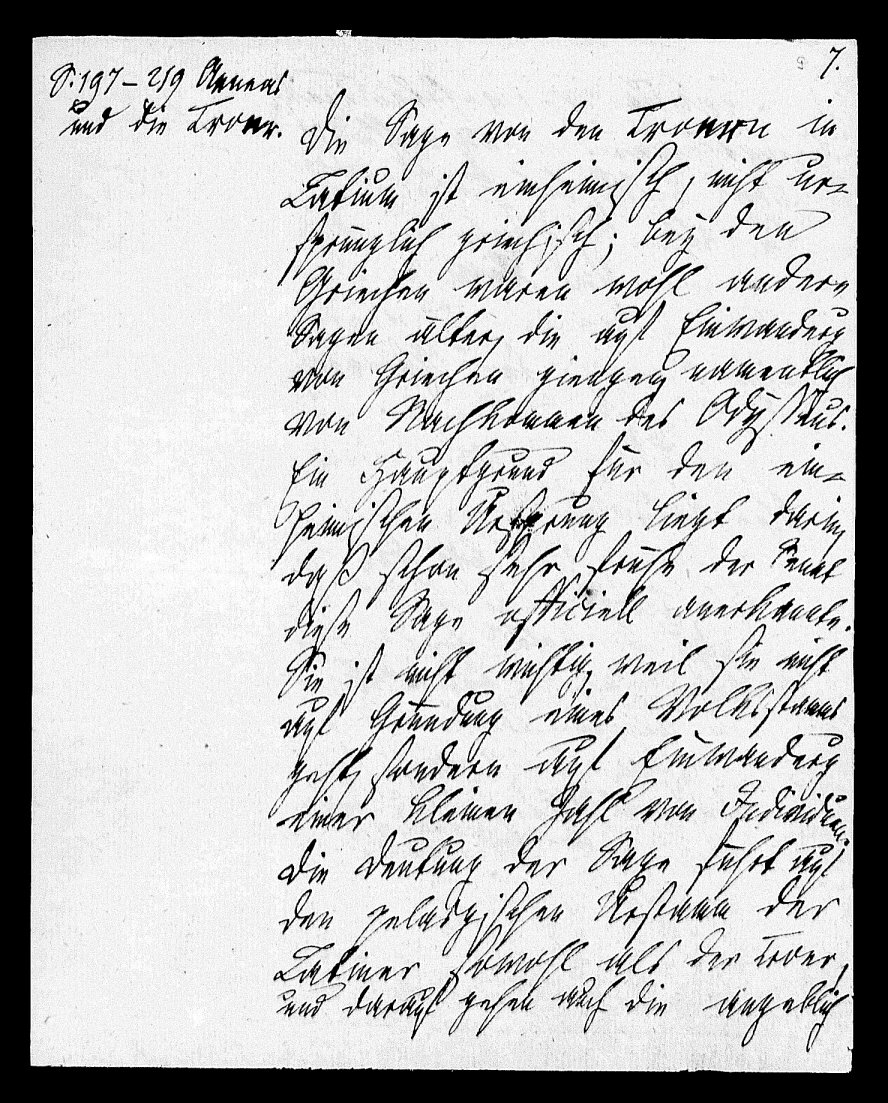 7.
S. 197–219 Aeneas
und die Troer.
Die Sage von den Troern in
Latium ist einheimisch, nicht ur-
sprünglich griechisch; bey den
Griechen waren wohl andere
Sagen älter, die auf Einwanderg
von Griechen giengen, namentlich
von Nachkommen des Odysseus.
Ein Hauptgrund für den ein-
heimischen Ursprung liegt darin,
daß schon sehr frühe der Senat
diese Sage officiell anerkannte.
Sie ist nicht wichtig, weil sie nicht
auf Gründung eines Volksstamms
geht, sondern auf Einwanderg
einer kleinen Zahl von Individuen.
Die Deutung der Sage führt auf
den pelasgischen Urstamm der
Latiner sowohl als der Troer,
und darauf gehen auch die angeblich